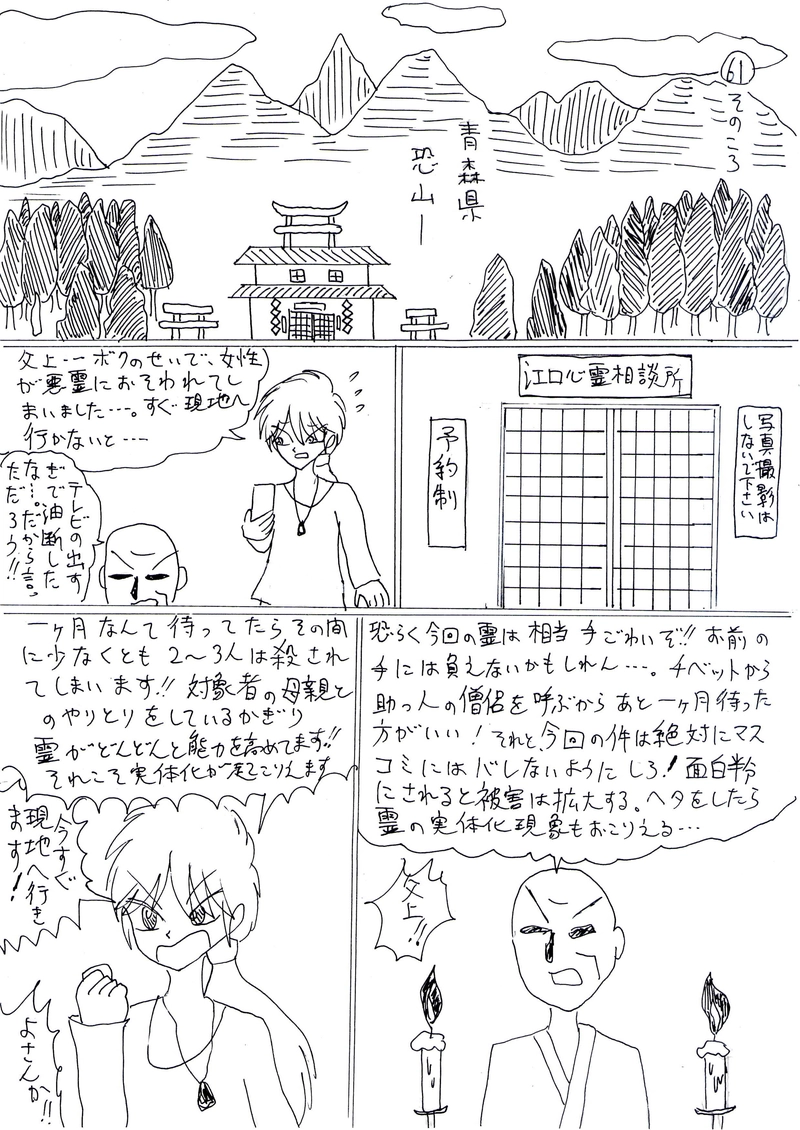 61
そのころ
青森県
恐山ー
江口心霊相談所
写真撮影は
しないで下さい
予約制
父上…ボクのせいで、女性
が悪霊におそわれてし
まいました…。すぐ現地へ
行かないと…
テレビの出す
ぎで油断した
な…。だから言っ
ただろう!!
恐らく今回の霊は相当手ごわいぞ!!お前の
手には負えないかもしれん…。チベットから
助っ人の僧侶を呼ぶからあと一ヶ月待った
方がいい!それと、今回の件は絶対にマス
コミにはバレないようにしろ!面白半分
にされると被害は拡大する。ヘタをしたら
霊の実体化現象もおこりえる…
父上!!
一ヶ月なんて待ってたらその間
に少なくとも2〜3人は殺され
てしまいます!!対象者の母親と
のやりとりをしているかぎり
霊がどんどんと能力を高めてます!!
それこそ実体化が起こりえます
今すぐ
現地へ行き
ます!
よさんか!!